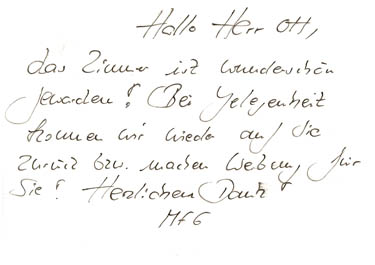 Hallo Herr Ott,
das Zimmer ist wunderschön
geworden! Bei Gelegenheit
kommen wir wieder auf Sie
zurück bzw. machen Werbung für
Sie! Herzlichen Dank!
MFG